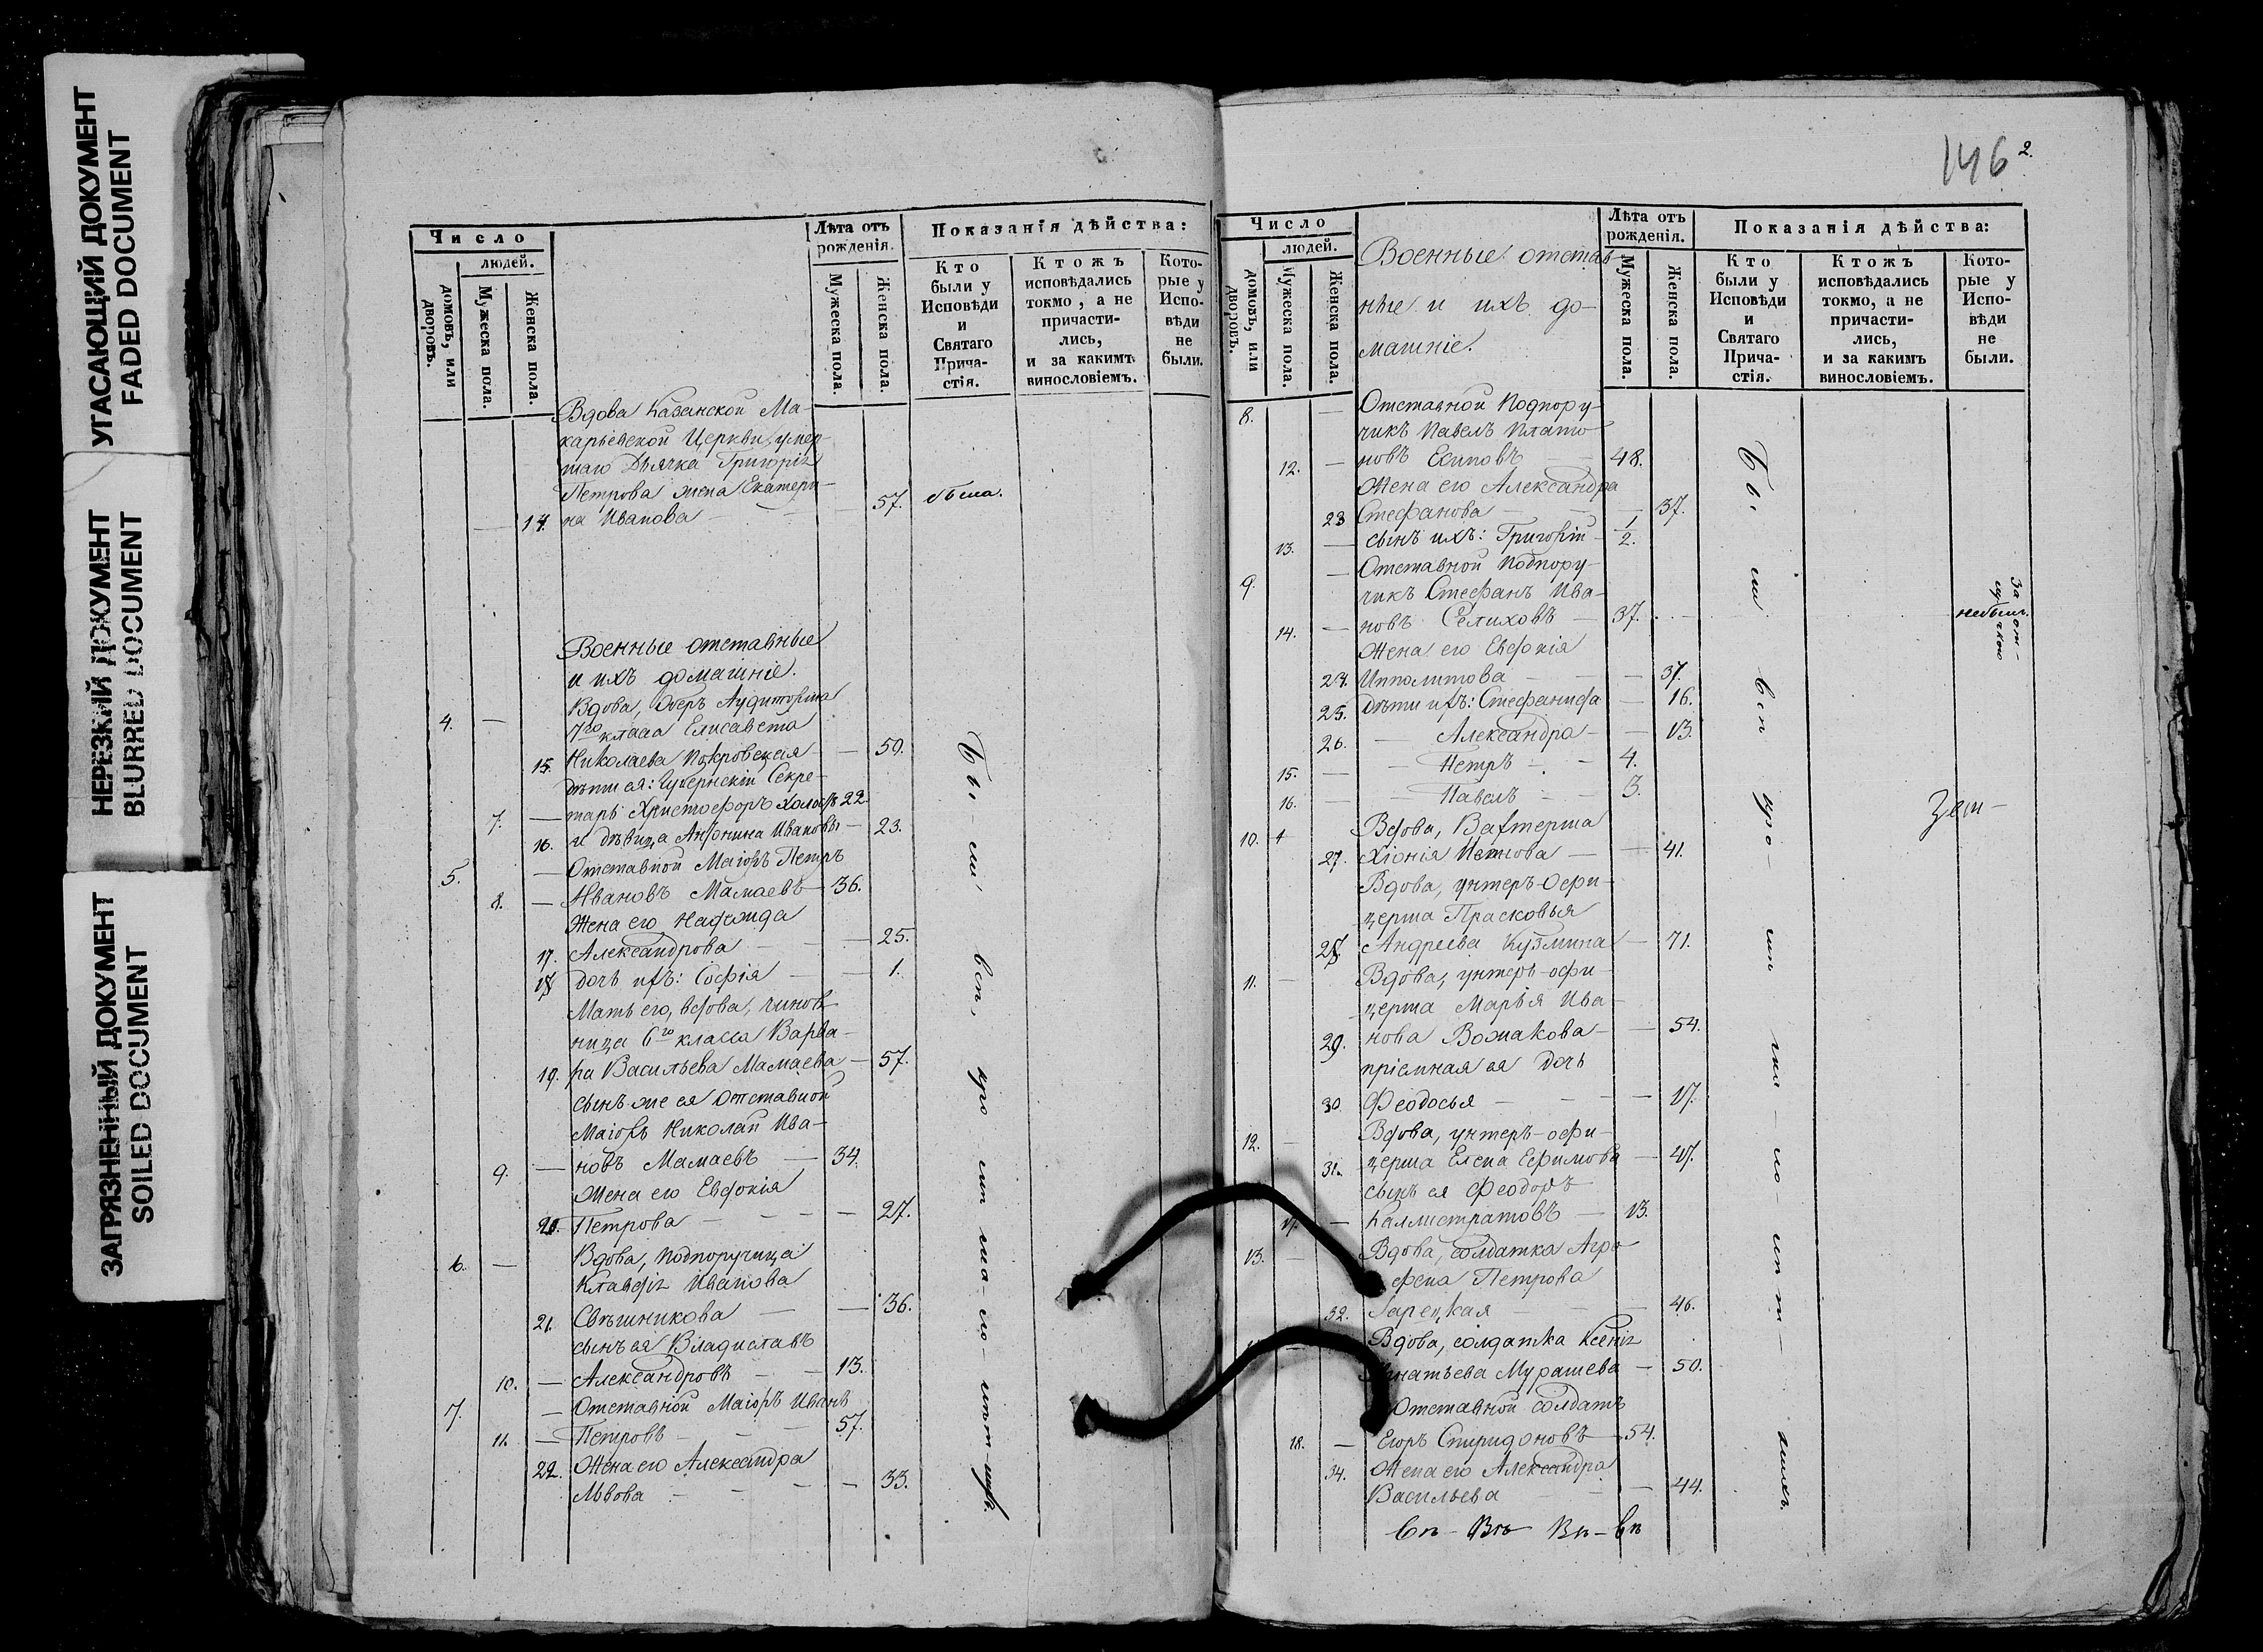 УГАСАЮЩИЙ ДОКУМЕНТ
FADED DOCUMENT
НЕРЕЗКИЙ ДОКУМЕНТ
BLURRED DOCUMENT
ЗАГРЯЗНЕННЫЙ ДОКУМЕНТ
SOILED DOCUMENT
Число
людей.
домовъ, или дворовъ.
Мужеска пола.
Женска пола.
Лѣта отъ рожденія.
Мужеска пола.
Женска пола.
Показанія дѣйства:
Кто были у Исповѣди и Святаго Прича-стія.
Ктожъ исповѣдались токмо, а не причасти-лись, и за какимъ винословіемъ.
Кото-рые у Испо-вѣди не были.
Вдова Казанской Ма-
карьевской Церкви умер-
шаго Дьячка Григорія
Петрова жена Екатери-
14. на Иванова — 57. была.
Военные отставные
и ихъ домашніе.
4. — Вдова, Оберъ Аудиторша
7го класса Елисавета
15. Николаева Покровская — 50.
дѣти ея: Губернскій Секре-
7. — тарь Христофоръ холостъ 22.
16. и дѣвица Антонина Ивановы — 23.
5. — Отставной Маіоръ Петръ
8. — Ивановъ Мамаевъ — 36.
Жена его Надежда
17. Александрова — 25.
18. дочь ихъ: Софія — 1.
Мать его, вдова, чинов-
ница 6го класса Варва-
19. ра Васильева Мамаева — 57.
сынъ же ея Отставной
Маіоръ Николай Ива-
9. — новъ Мамаевъ — 34.
Жена его Евдокія
20. Петрова — 27.
6. — Вдова, Подпоручица
Клавдія Иванова
21. Свѣшникова — 36.
сынъ ея Владиславъ
10. — Александровъ — 13.
7. — Отставной Маіоръ Иванъ
11. — Петровъ — 57.
22. Жена его Александра
Львова — 33.
146 2.
Число
людей.
домовъ, или дворовъ.
Мужеска пола.
Женска пола.
Военные отстав-
ные и ихъ до-
машніе.
Лѣта отъ рожденія.
Мужеска пола.
Женска пола.
Показанія дѣйства:
Кто были у Исповѣди и Святаго Прича-стія.
Ктожъ исповѣдались токмо, а не причасти-лись, и за какимъ винословіемъ.
Кото-рые у Испо-вѣди не были.
8. — Отставной Подпору-
чикъ Павелъ Плато-
12. — новъ — 48.
Жена его Александра
23 Стефанова — 37.
13. — сынъ ихъ: Григорій — 1/2.
9. — Отставной Подпору-
чикъ Стефанъ Ива-
14. — новъ Селиховъ — 37.
Жена его Евдокія
24. Ипполитова — 37.
25. дѣти ихъ: Стефанида — 16.
26. — Александра — 13.
15. — Петръ — 4.
16. — Павелъ — 3.
10. Вдова, Вахтерша
27. Хіонія — 41.
Вдова, унтеръ-офи-
церша Прасковья
28. Андреева Кузмина — 71.
11. — Вдова, унтеръ-офи-
церша Марья Ива-
29. нова Вожакова — 54.
пріемная ея дочь
30. Феодосья — 17.
12. — Вдова, унтеръ-офи-
31. церша Елена Ефимова — 47.
сынъ ея Феодоръ
17. — Каллистратовъ — 13.
13. — Вдова, солдатка Агра-
фена Петрова
32. — 46.
Вдова, солдатка Ксенія
Мурашева — 50.
Отставной солдатъ
18. — Егоръ Спиридоновъ — 54.
34. Жена его Александра
Васильева — 44.